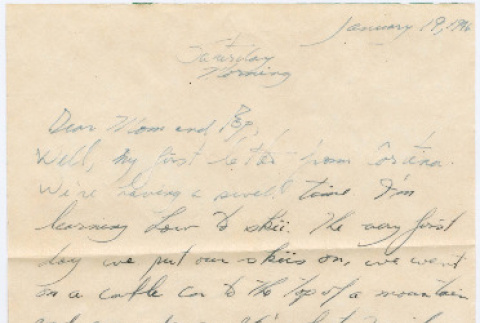 January 19, 1946
Saturday
Morning
Dear Mom and Pop,
Well, my first letter from Cortina.
We're having a swell time I'm
learning how to skii. The very first
day we put our skiis on, we went
on a cable car to the top of a mountain